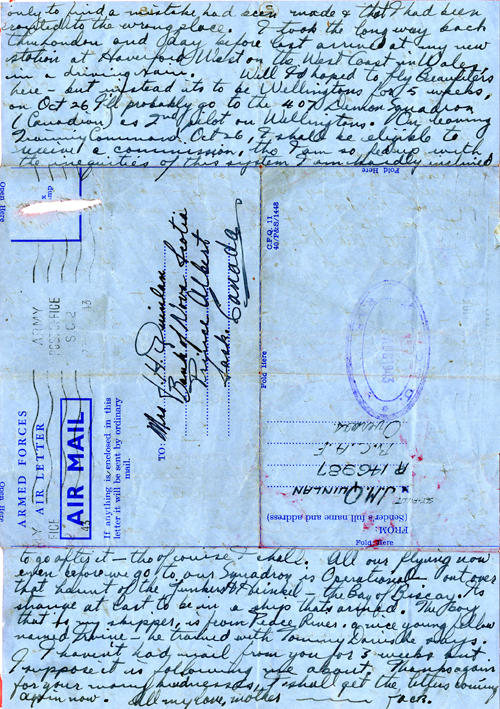 only to find a mistake had been made & that I had been
routed to the wrong place. I took the long way back
thru London and day before last arrived at my new
station at Haverford West on the West Coast in Wales,
in a driving rain. Well I'd hoped to fly Beaufighters
here - but instead its to be Wellingtons for 5 weeks,
on Oct 26 I'll probably go to the 407 Demon Squadron
(Canadian) as 2nd pilot on Wellingtons. On leaving
Training Command, Oct 26, I shall be eligible to
receive a commission, tho I am so fed up with
the inequities of this system I am hardly inclined
Open Here
ARMY
POST OFFICE
S.C.2
43
ARMED FORCES
AIR LETTER
AIR MAIL
If anything is enclosed in this
letter it will be sent by ordinary
mail.
TO:
Mrs J.H. Quinlan
Bank of Nova Scotia
Prince Albert
Sask. Canada
Open Here
Fold Here
C.F.Q. 11
40/P&S/1448
Fold Here
1943
Overseas
R.C.A.F.
R 146987
J.M. QUINLAN
(Sender's full name and address)
FROM:
Fold Here
to go after it - tho of course I shall. All our flying now
even before we go to our Squadron is Operational - out over
that haunt of the Junkers & Heinkel - the Bay of Biscay. Its
strange at last to be in a ship thats armed. The boy
that is my skipper, is from Peace River. a nice young fellow
named Irvine - he trained with Tommy Dainsk he says.
I haven't had mail from you for 3 weeks but
I suppose it is following me about. Thanks again
for your many kindnesses, I shall get the letters coming
again now. All my love, mother Jack.